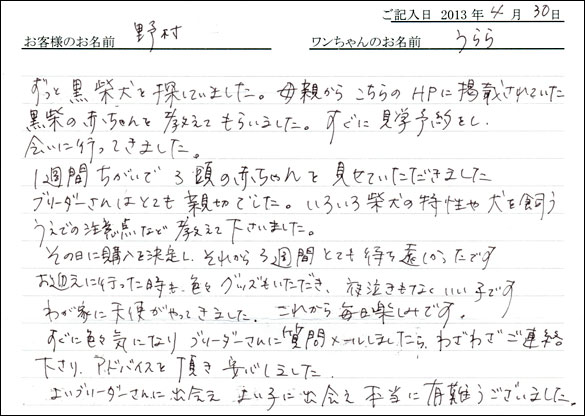 ご記入日 2013 年 4 月 30 日
お客様のお名前 野村 ワンちゃんのお名前 うらら
ずっと黒柴犬を探していました。母親からこちらのHPに掲載されていた
黒柴の赤ちゃんを教えてもらいました。すぐに見学予約をし、
会いに行ってきました。
1週間ちがいで3頭の赤ちゃんを見せていただきました
ブリーダーさんはとても親切でした。いろいろ柴犬の特性や犬を飼う
うえでの注意点など教えて下さいました。
その日に購入を決定し、それから3週間とても待ち遠しかったです
お迎えに行った時も、色々グッズもいただき、夜泣きもなくいい子です
わが家に天使がやってきました。これから毎日楽しみです。
すぐに色々気になりブリーダーさんに質問メールしましたら、わざわざご連絡
下さり、アドバイスを頂き安心しました。
よいブリーダーさんに出会え よい子に出会え 本当に有難うございました。